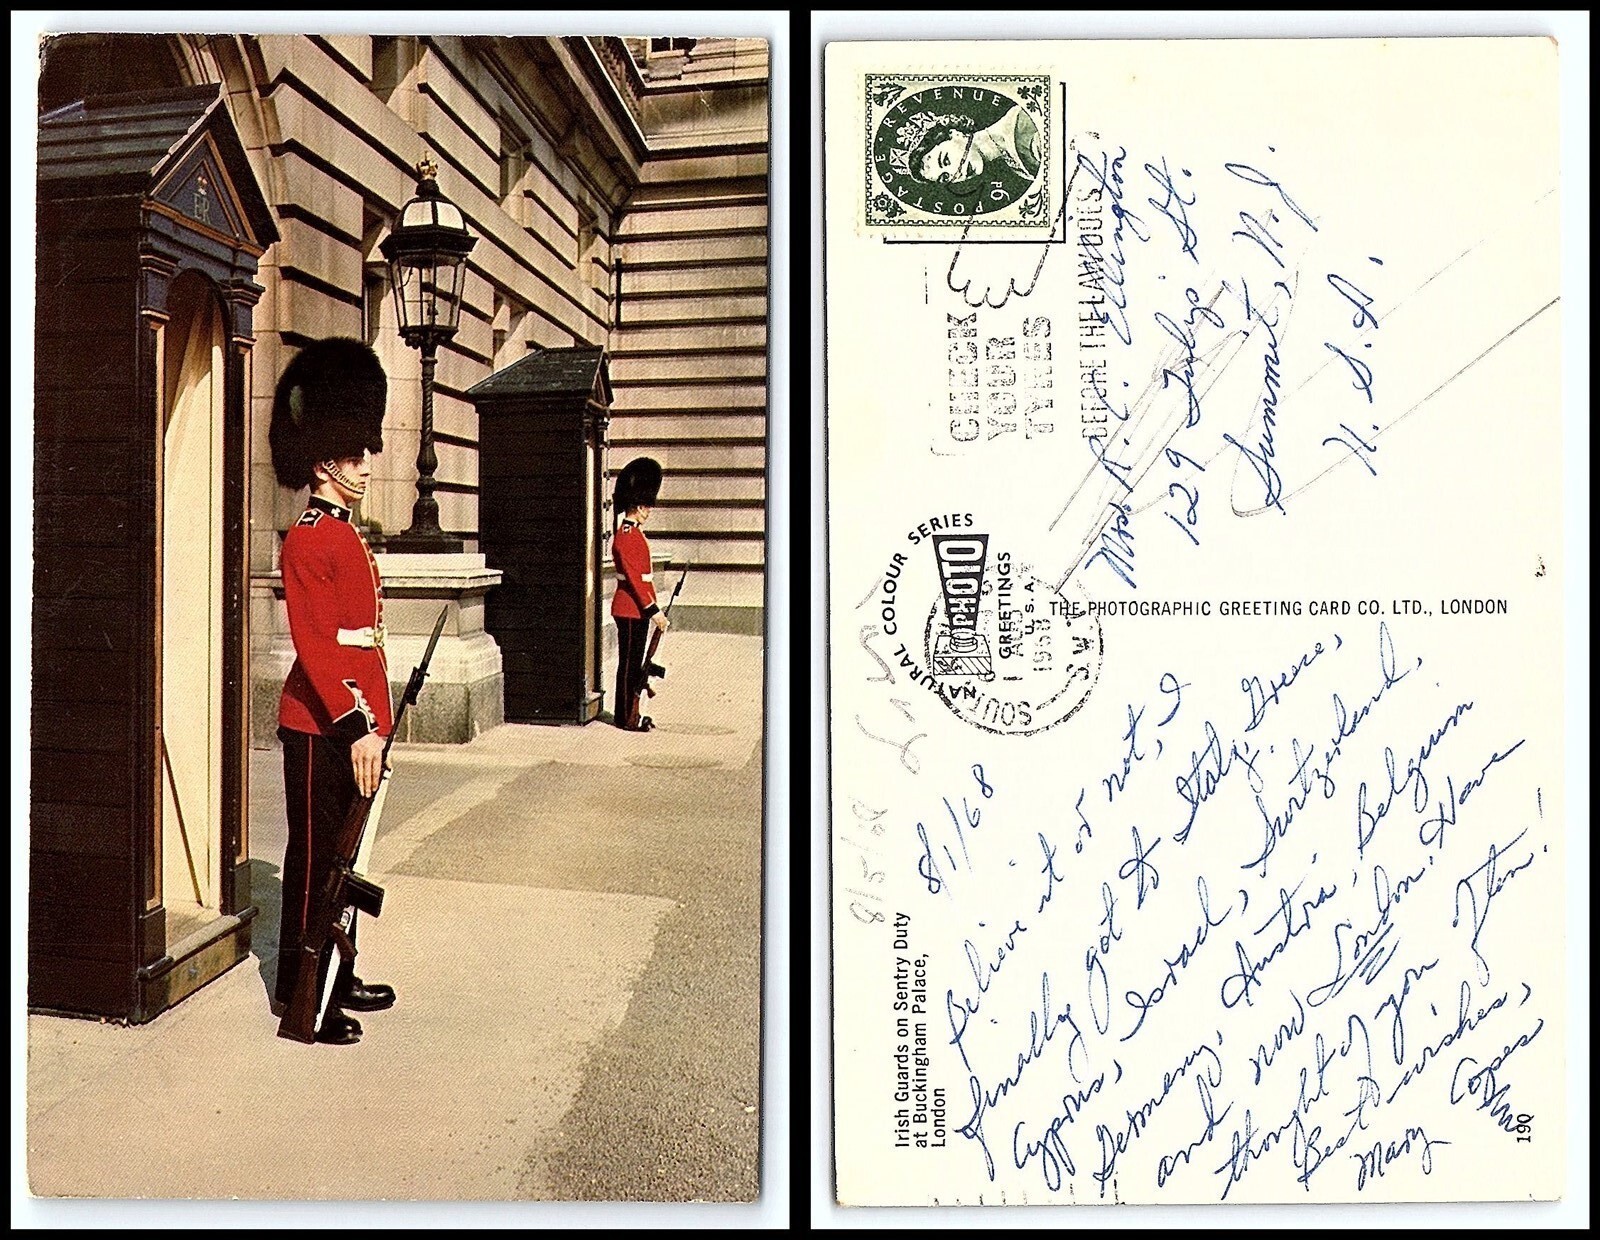 ER
POSTAGE REVENUE
9D
CHECK
YOUR
TYRES
BEFORE THE LAW DOES
Mrs. R. C. Ellington
129 Tulip St.
Summit, N.J.
U. S. A.
NATURAL COLOUR SERIES
PHOTO
GREETINGS
U.S.A.
1 AUG
1968
S.W.
THE PHOTOGRAPHIC GREETING CARD CO. LTD., LONDON
8/1/68
Believe it or not, I
finally got to Italy, Greece,
Cyprus, Israel, Switzerland,
Germany, Austria, Belguim
and now London. Have
thought of you often!
Best wishes,
Mary Copes
8/5/68
Irish Guards on Sentry Duty
at Buckingham Palace,
London
190